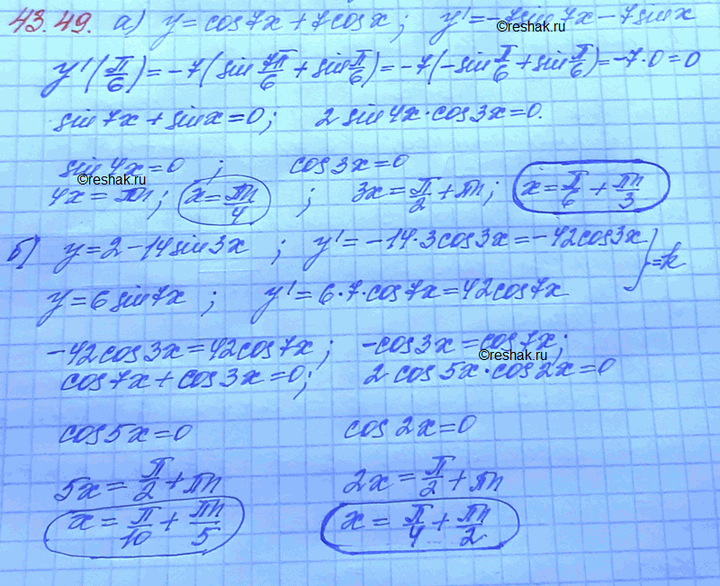 43.49. а) y=cos7x+7cosx; y'=-7sin7x-7sinx
y'(π/6)=-7(sin 7π/6+sin π/6)=-7(-sin π/6+sin π/6)=-7·0=0
sin7x+sinx=0; 2sin4x·cos3x=0.
sin4x=0; cos3x=0
©reshak.ru
©reshak.ru
4x=πn; x=πn/4; 3x=π/2+πn; x=π/6+πn/3
б) y=2-14sin3x; y'=-14·3cos3x=-42cos3x
y=6sin7x; y'=6·7·cos7x=42cos7x } =k
-42cos3x=42cos7x; -cos3x=cos7x;
©reshak.ru
cos7x+cos3x=0; 2cos5x·cos2x=0
cos5x=0 cos2x=0
5x=π/2+πn 2x=π/2+πn
x=π/10+πn/5 x=π/4+πn/2